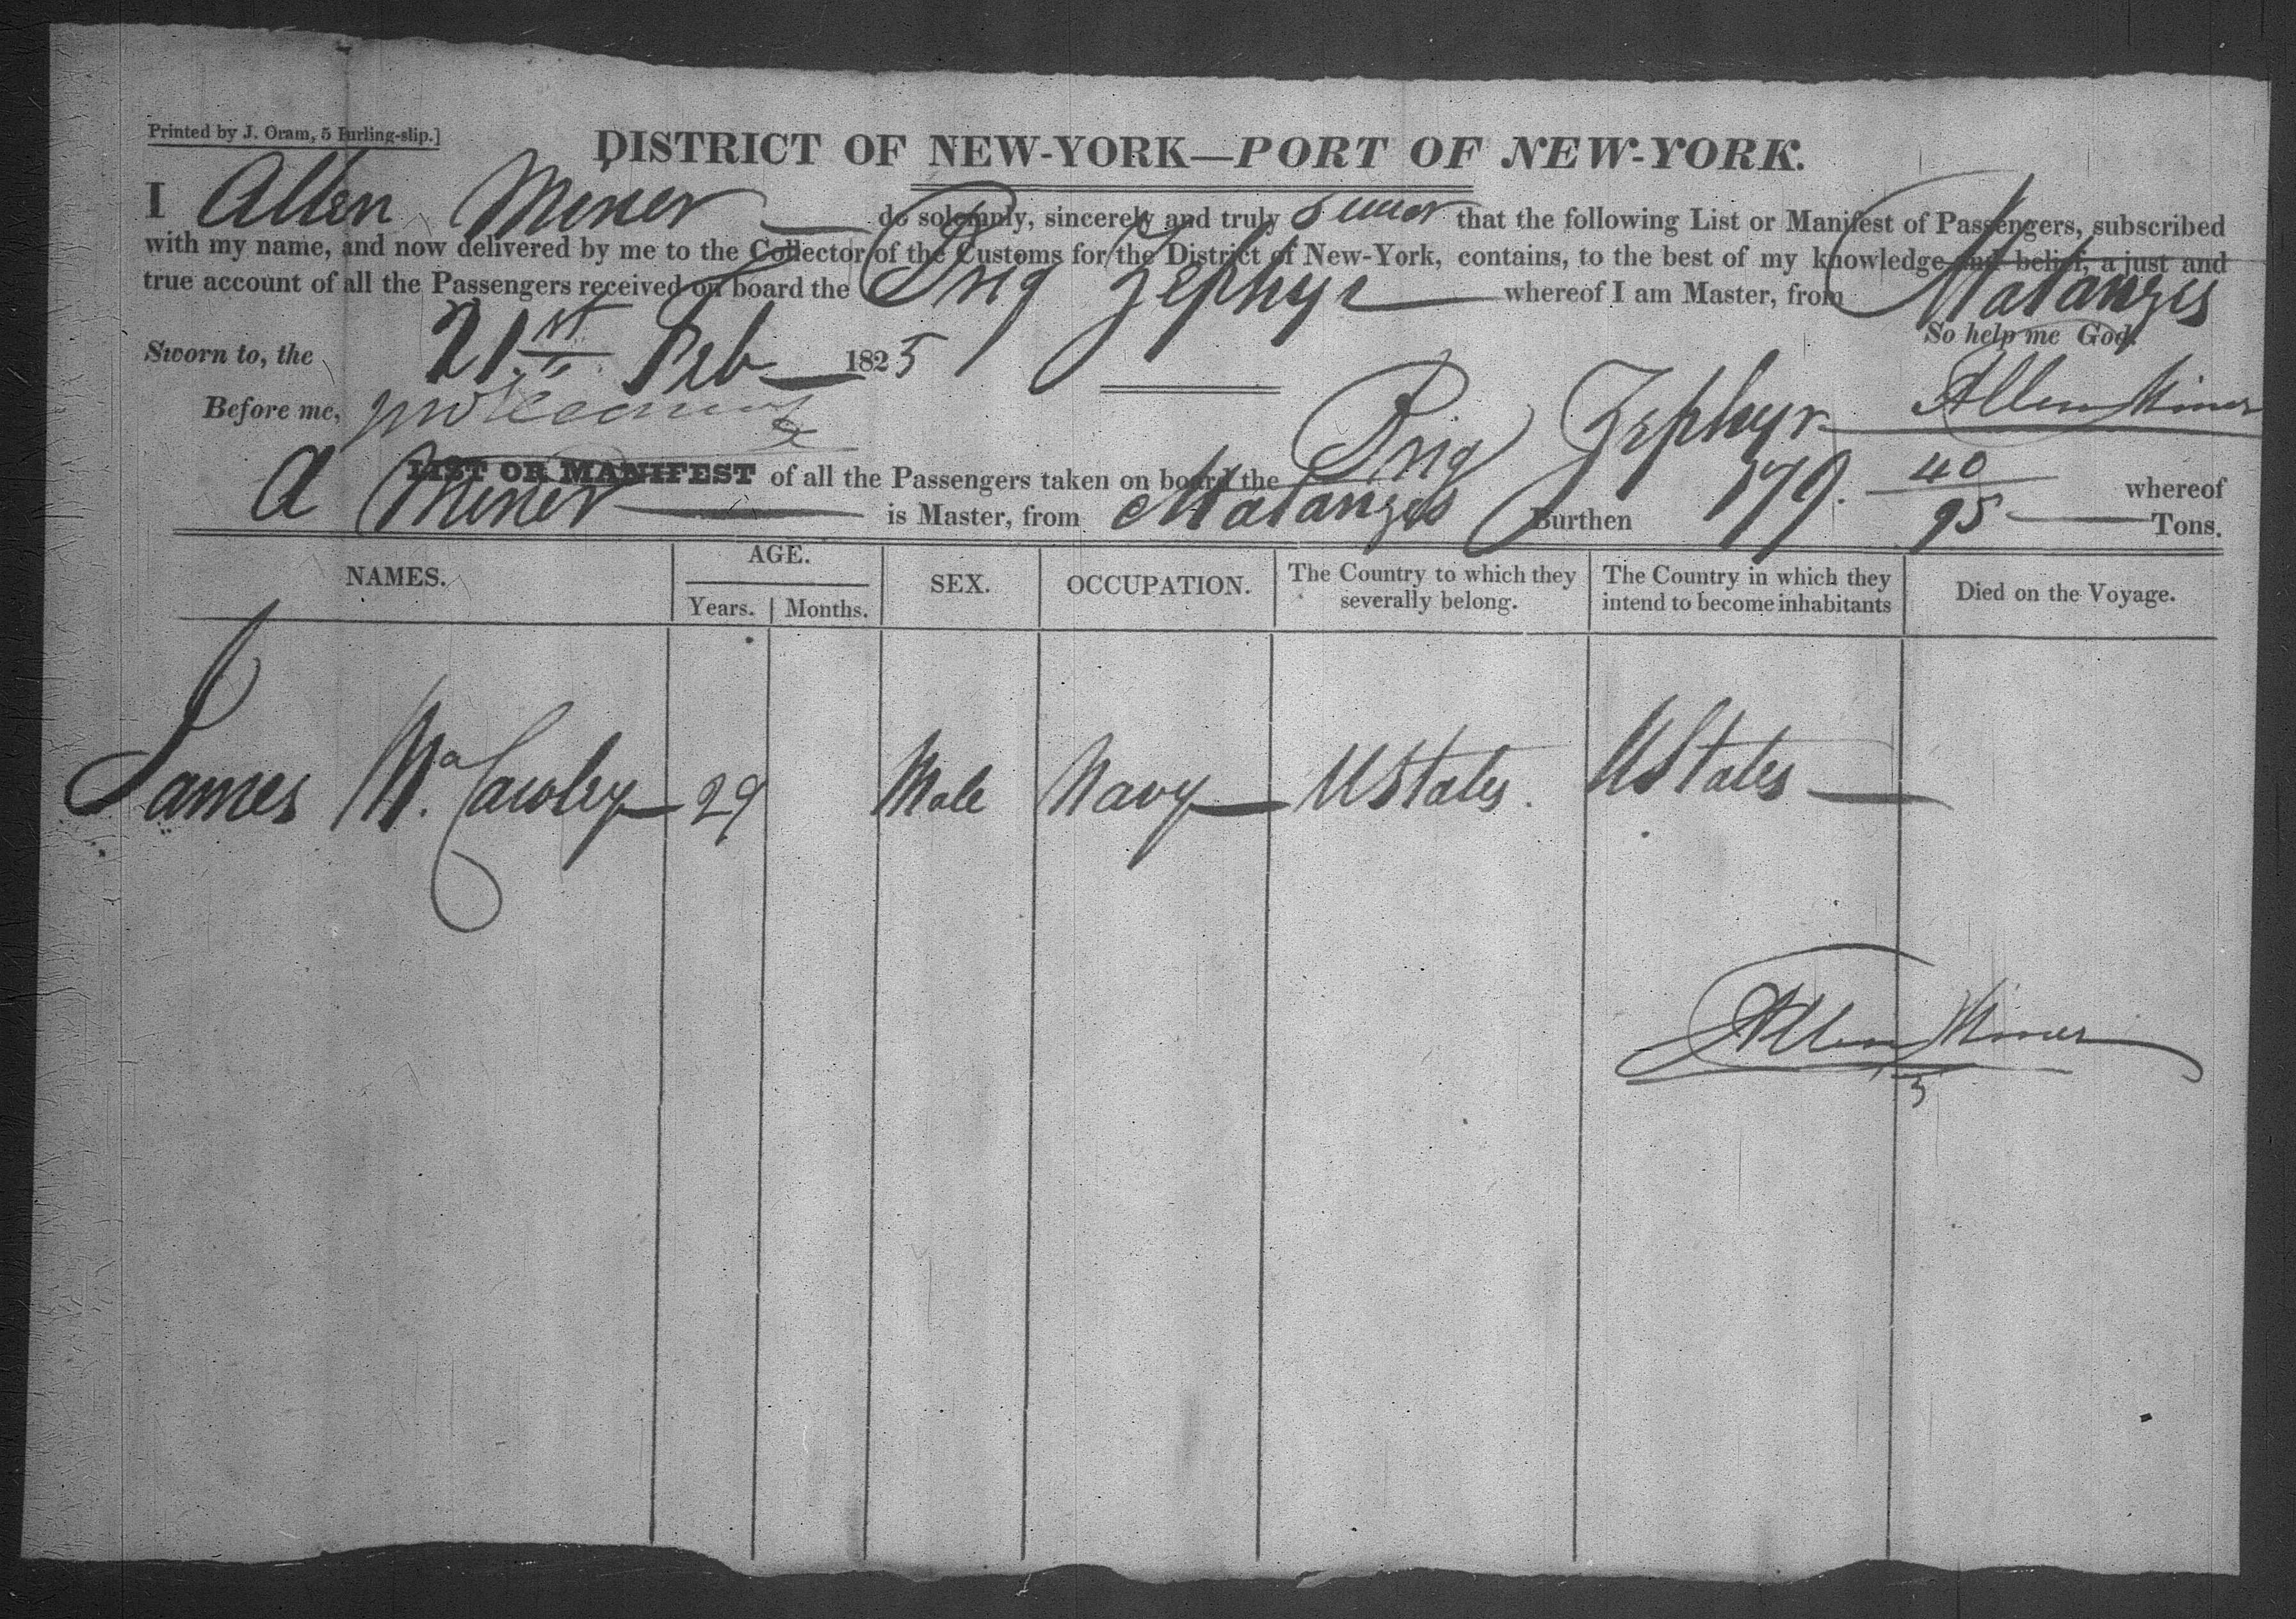 Printed by J. Oram, 5 Burling-slip.]
DISTRICT OF NEW-YORK—PORT OF NEW-YORK.
I Allen Miner do solemnly, sincerely and truly swear that the following List or Manifest of Passengers, subscribed
with my name, and now delivered by me to the Collector of the Customs for the District of New-York, contains, to the best of my knowledge and belief, a just and
true account of all the Passengers received on board the Brig Zephyr whereof I am Master, from Matanzes
So help me God.
Sworn to, the 21.st Feb 1825
Allen Miner
Before me,
LIST OR MANIFEST of all the Passengers taken on board the Brig Zephyr whereof
A Miner is Master, from Matanzes Burthen 179. 40/95 Tons.
NAMES. AGE. SEX. OCCUPATION. The Country to which they severally belong. The Country in which they intend to become inhabitants Died on the Voyage.
Years. Months.
James Ma. Cawley 29 Male Navy UStates. UStates
Allen Miner